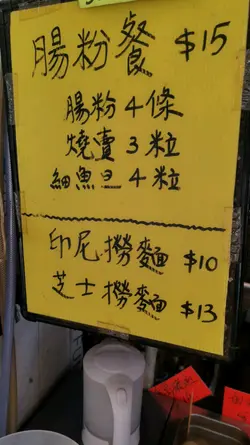 腸粉餐 $15
腸粉4條
燒賣3粒
細魚旦4粒
印尼撈麵 $10
芝士撈麵 $13